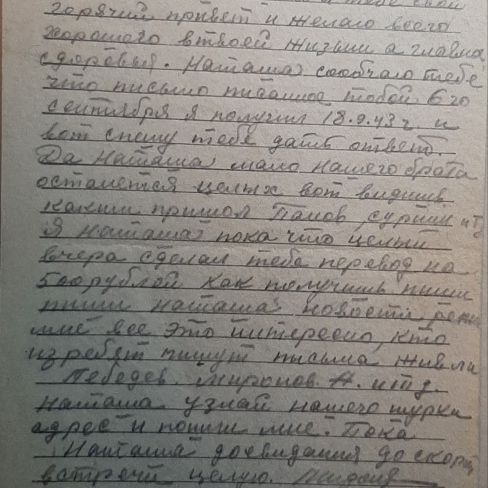 горячий привет и желаю всего
хорошего в твоей жизни а главна
здоровья. Наташа сообчаю тебе
что письмо писанное тобой 6го
сентября я получил 18.9.43г и
вот спешу тебе дать ответ.
Да Наташа мало нашего брата
останется целых вот видишь
каким пришол Панов, сурнин и т
Я Наташа пока что целый
вчера сделал тебе перевод на
500 рублей как получишь пиши
пиши наташа новости
мне все это интересно, кто
из ребят пишут письма жив ли
Лебедев. Миронов. А. итд.
Наташа узнай нашего шурки
адрес и пошли мне. Пока
Наташа досвидания до скорой
встречи целую.